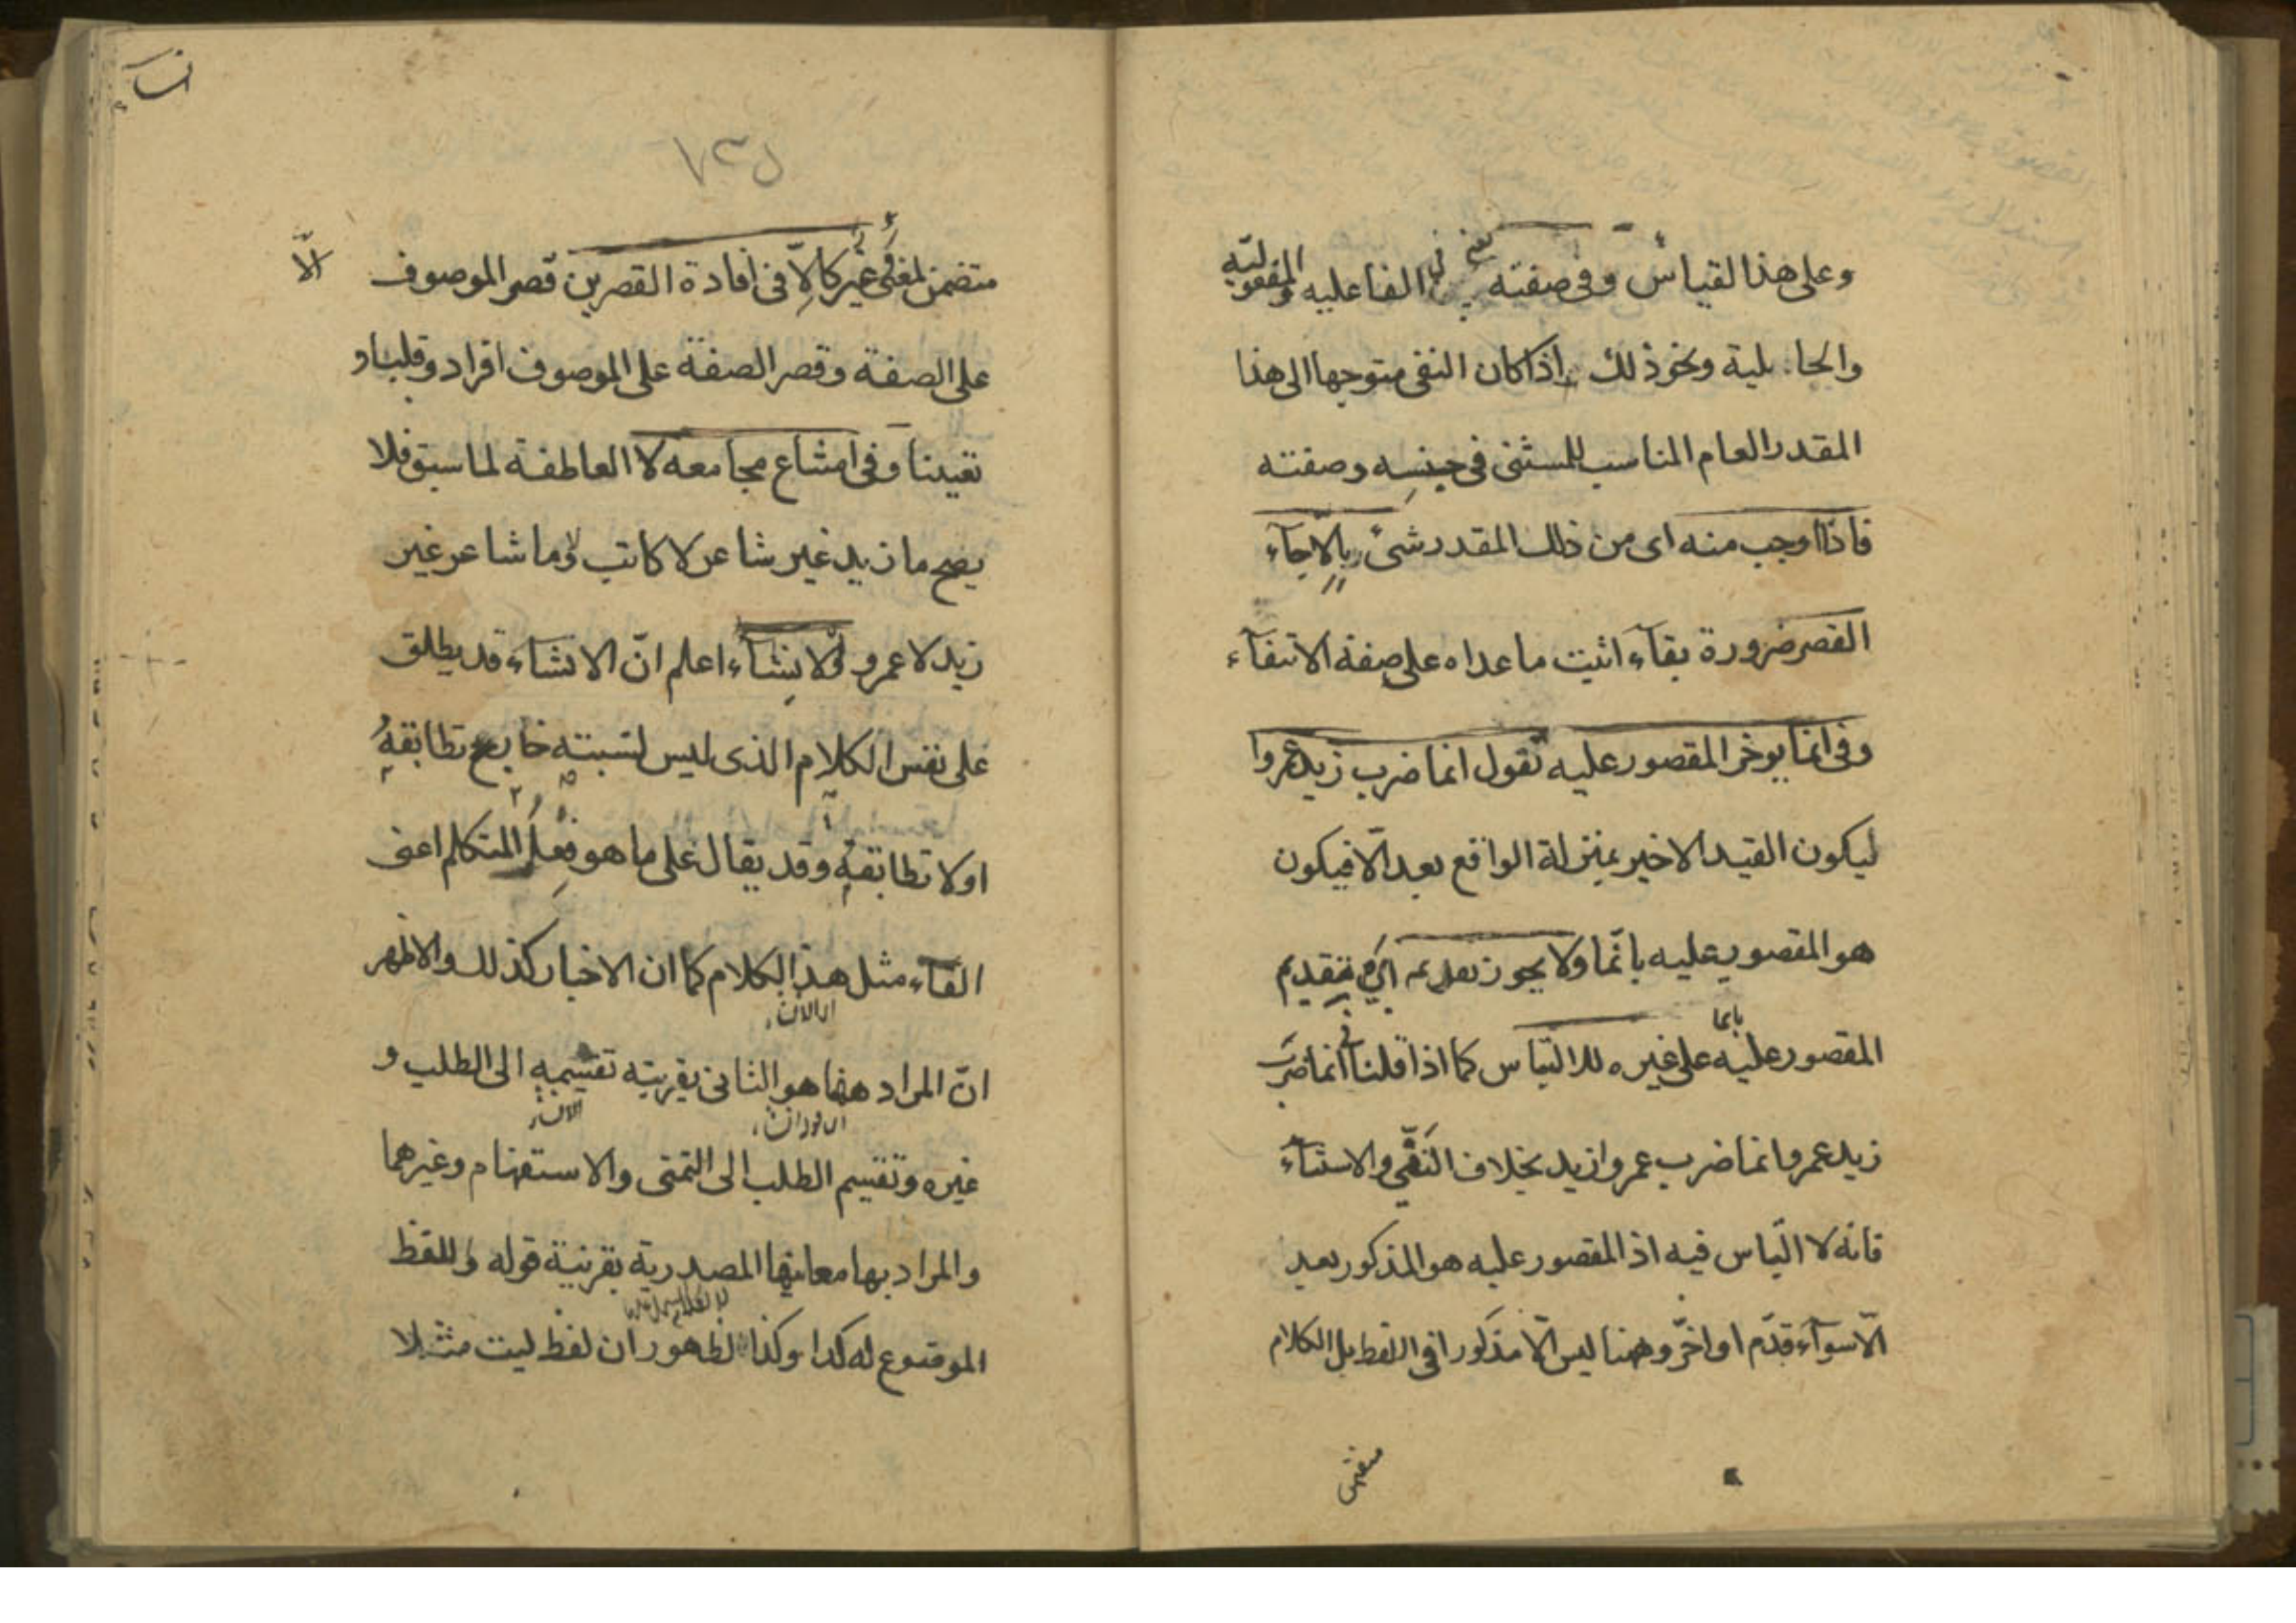 وعلى هذا القياس وفى صفته يعنى فى الفاعليه والمفعوليّة
والحالية ونحو ذلك واذا كان النفى متوجها الى هذا
المقدر العام المناسب للمستثنى فى جنسه وصفته
فاذا اوجب منه اى من ذلك المقدر شئ بالاّ جآء
القصر ضرورة بقآء اثبت ما عداه على صفة الانتفآء
وفى انما يوخر المقصور عليه تقول انما ضرب زيد عمروا
ليكون القيد الاخير بمنزلة الواقع بعد الاّ فيكون
هو المقصور عليه بانّما ولا يجوز تقديمه اى تقديم
المقصور عليه بانما على غيره للالتباس كما اذا قلنا فى انما ضرب
زيد عمروا نما ضرب عمروا زيد بخلاف النّفى والاستثنآء
فانه لا التباس فيه اذ المقصور عليه هو المذكور بعد
الاّ سوآء قدّم او اخّر وههنا ليس الاّ مذكورا فى اللفظ بل الكلام
متضمن
انشاء
٧٣٥
متضمن لمعنى وغير كالاّ فى افادة القصرين قصر الموصوف
الّا
على الصفة وقصر الصفة على الموصوف افراد وقلبا و
تعيينا وفى امتناع مجامعه لا العاطفة لما سبق فلا
يصح ما زيد غير شاعر لا كاتب ولا ما شاعر غير
زيد لا عمرو الانشآء اعلم انّ الانشاء قد يطلق
على نفس الكلام الذى ليس لنسبته خارج تطابقه
او لا تطابقه وقد يقال على ما هو فعل المتكلم اعنى
القآء مثل هذا الكلام كما ان الاخبار كذلك والاظهر
انّ المراد ههنا هو الثانى بقرينه تقسيمه الى الطلب و
غيره وتقسيم الطلب الى التمنى والاستفهام وغيرهما
والمراد بها معانيها المصدرية بقرينة قوله واللفظ
الموضوع له كدا وكذا لظهور ان لفظ ليت مثلا